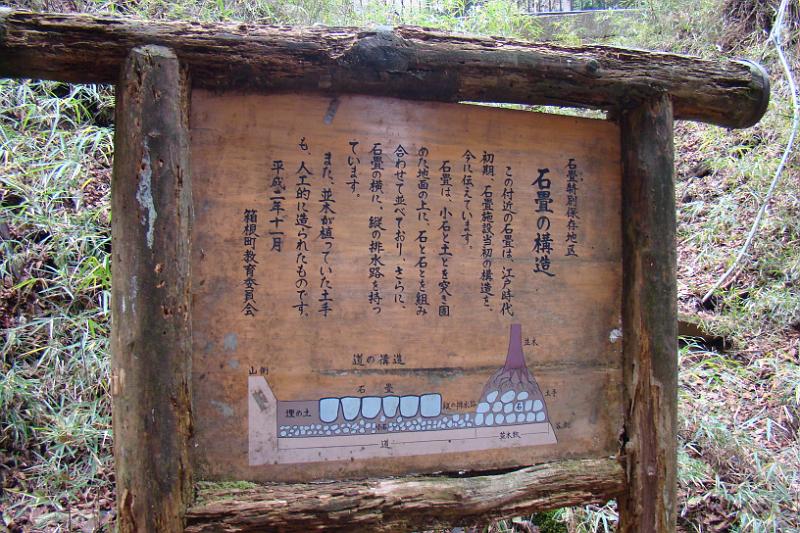 石畳特別保存地区
石畳の構造
この付近の石畳は、江戸時代
初期、石畳施設当初の構造を、
今に伝えています。
石畳は、小石と土とを突き固
めた地面の上に、石と石とを組み
合わせて並べており、さらに、
石畳の横に、縦の排水路を持っ
ています。
また、並木が植っていた土手
も、人工的に造られたものです。
平成二年十一月
箱根町教育委員会
道の構造
山側
石畳
埋め土
小石
道
縦の排水路
並木
土手
石
谷側
並木敷